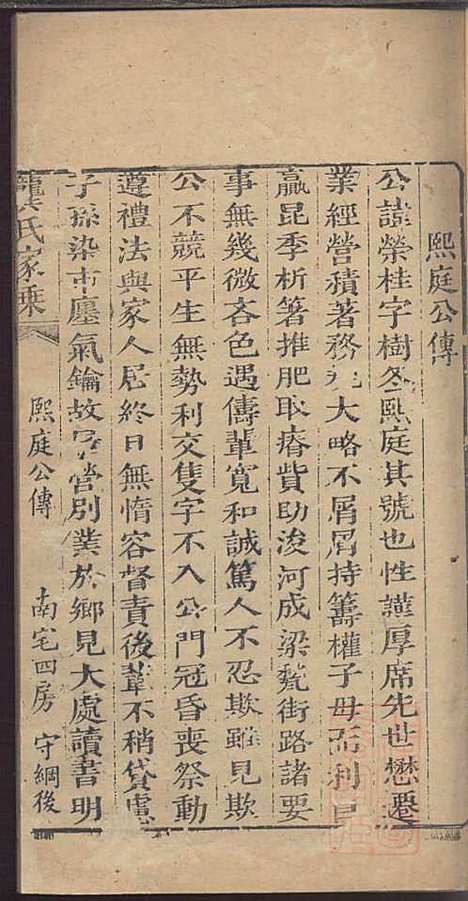 熙庭公傳
公諱榮桂字樹冬熙庭其號也性謹厚席先世懋遷
業經營積著務先大略不屑屑持籌權子母而利且
贏昆季析箸推肥取瘠貲助浚河成梁甃街路諸要
事無幾微吝色遇儔輩寬和誠篤人不忍欺雖見欺
公不競平生無勢利交隻字不入公門冠昏喪祭動
遵禮法與家人居終日無惰容督責後輩不稍貸慮
子孫染市廛氣鑰故居營別業於鄉見大處讀書明
龔氏家乘
熙庭公傳
南宅四房
守綱後